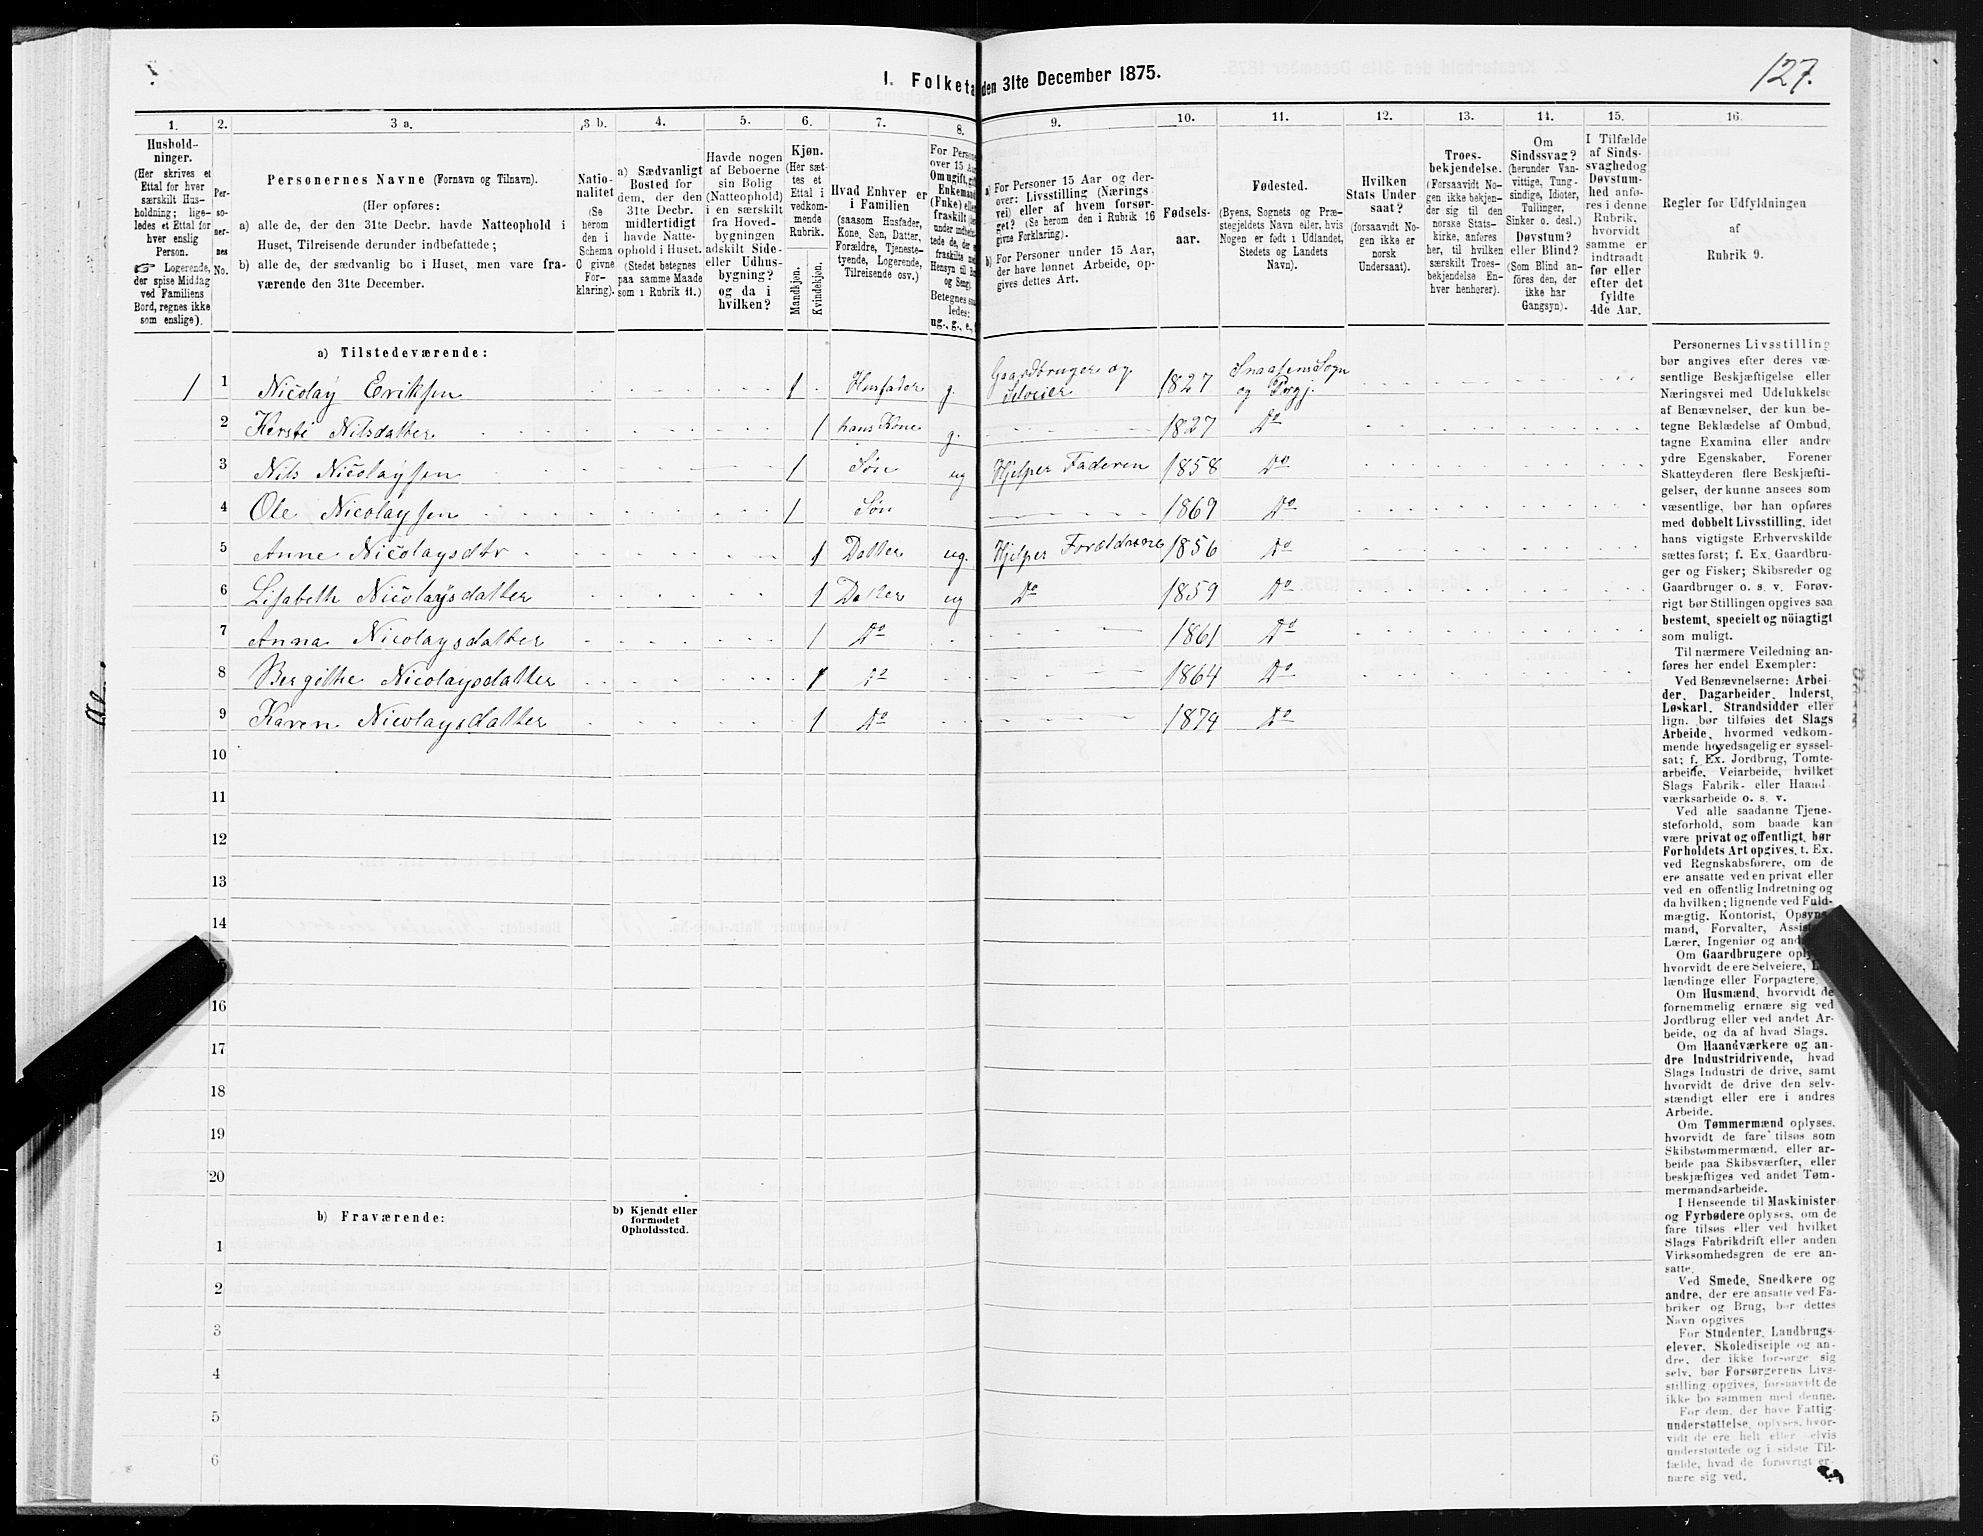 127.
1. Folketæ den 31te December 1875.
1. 2. 3 a. 3 b. 4. 5. 6. 7. 8. 9. 10. 11. 12. 13. 14. 15. 16.
Hushold-
ninger.
(Her skrives et
Ettal for hver
særskilt Hus-
holdning; lige-
ledes et Ettal for
hver enslig
Person.
☞ Logerende,
der spise Middag
ved Familiens
Bord, regnes ikke
som enslige).
Per-
so-
ner-
nes
No.
Personernes Navne (Fornavn og Tilnavn).
(Her opføres:
a) alle de, der den 31te Decbr. havde Natteophold i
Huset, Tilreisende derunder indbefattede;
b) alle de, der sædvanlig bo i Huset, men vare fra-
værende den 31te December.
Natio-
nalitet
(Se
herom
den i
Schema
C givne
For-
klaring).
a) Sædvanligt
Bosted for
dem, der den
31te Decbr.
midlertidigt
havde Natte-
ophold i Huset.
(Stedet betegnes
paa samme Maade
som i Rubrik 11.)
Havde nogen
af Beboerne
sin Bolig
(Natteophold)
i en særskilt
fra Hoved-
bygningen
adskilt Side-
eller Udhus-
bygning?
og da i
hvilken?
Kjøn.
(Her sæt-
tes et
Ettal i
vedkom-
mende
Rubrik.
Mandkjøn.
Kvindekjøn.
Hvad Enhver er
i Familien
(saasom Husfader,
Kone, Søn, Datter,
Forældre, Tjeneste-
tyende, Logerende,
Tilreisende osv.)
For Person
over 15 Aar
Om ugift, gift
Enkemand
(Fnke) eller
fraskilt (der-
under indbefat-
tede de, der e
fraskilte med
Hensyn til Bo
og Seng).
Betegnes saa-
ledes:
ug., g., e.,
a) For Personer 15 Aar og der-
over: Livsstilling (Nærings
vei) eller af hvem forsør-
get? (Se herom den i Rubrik 16
givne Forklaring).
b) For Personer under 15 Aar,
der have lønnet Arbeide, op-
gives dettes Art.
Fødsels-
aar.
Fødested.
(Byens, Sognets og Præ-
stegjeldets Navn eller, hvis
Nogen er født i Udlandet,
Stedets og Landets
Navn).
Hvilken
Stats Under
saat?
(forsaavidt No-
gen ikke er
norsk
Undersaat).
Troes-
bekjendelse.
(Forsaavidt No-
gen ikke bekjen-
der sig til den
norske Stats-
kirke, anføres
her, til hvilken
særskilt Troes-
bekjendelse En-
hver henhører).
Om
Sindssvag?
(herunder Van-
vittige, Tung-
sindige, Idioter,
Tullinger,
Sinker o. desl.)
Døvstum?
eller Blind?
(Som Blind an-
føres den, der
ikke har
Gangsyn).
I Tilfælde
af Sinds-
svaghed og
Døvstum-
hed anfø-
res i denne
Rubrik,
hvorvidt
samme er
indtraadt
før eller
efter det
fyldte
4de Aar.
Regler for Udfyldningen
af
Rubrik 9.
a) Tilstedeværende:
1 1 Nicolay Eriksen 1 Husfader g. Gaardbruger og Selveier 1827 Snaasens Sogn og Prgj.
2 Kirsti Nilsdatter 1 hans Kone g. 1827 Do
3 Nils Nicolaysen 1 Søn ug Hjelper Faderen 1858 Do
4 Ole Nicolaysen 1 Søn 1869 Do
5 Anne Nicolaysdtr 1 Datter ug. Hjelper Forældrene 1856 Do
6 Lisabeth Nicolaysdatter 1 Datter ug Do 1859 Do
7 Anna Nicolaysdatter 1 Do 1861 Do
8 Bergithe Nicolaysdatter 1 Do 1864 Do
9 Karen Nicolaysdatter 1 Do 1874 Do
10
11
12
13
14
16
17
18
19
20
b) Fraværende:
b) Kjendt eller
formodet
Opholdssted.
1
2
3
4
5
6
Personernes Livsstilling
bør angives efter deres væ-
sentlige Beskjæftigelse eller
Næringsvei med Udelukkelse
af Benævnelser, der kun be-
tegne Beklædelse af Ombud,
tagne Examina eller andre
ydre Egenskaber. Forener
Skatteyderen flere Beskjæfti-
gelser, der kunne ansees som
væsentlige, bør han opføres
med dobbelt Livsstilling, idet
hans vigtigste Erhvervskilde
sættes først; f. Ex. Gaardbru-
ger og Fisker; Skibsreder og
Gaardbruger o. s. v. Forøv-
rigt bør Stillingen opgives saa
bestemt, specielt og nöiagtigt
som muligt.
Til nærmere Veiledning an-
føres her endel Exempler:
Ved Benævnelserne: Arbei-
der, Dagarbeider, Inderst,
Løskarl, Strandsidder eller
lign. bør tilføies det Slags
Arbeide, hvormed vedkom-
mende hovedsagelig er syssel-
sat; f. Ex. Jordbrug, Tomte-
arbeide, Veiarbeide, hvilket
Slags Fabrik- eller Haand-
værksarbeide o. s. v.
Ved alle saadanne Tjene-
steforhold, som baade kan
være privat og offentligt, bør
Forholdets Art opgives, t. Ex.
ved Regnskabsførere, om de
ere ansatte ved en privat eller
ved en offentlig Indretning og
da hvilken; lignende ved Fuld-
mægtig, Kontorist, Opsyns-
mand, Forvalter, Assis
Lærer, Ingeniør og and
Om Gaardbrugere oply
hvorvidt de ere Selveiere,
lændinge eller Forpagtere.
Om Husmænd, hvorvidt de
fornemmelig ernære sig ved
Jordbrug eller ved andet Ar-
beide, og da af hvad Slags.
Om Haandværkere og an-
dre Industridrivende, hvad
Slags Industri de drive, samt
hvorvidt de drive den selv-
stændigt eller ere i andres
Arbeide.
Om Tømmermænd oplyses,
hvorvidt de fare tilsøs som
Skibstømmermænd, eller ar-
beide paa Skibsværfter, eller
beskjæftiges ved andet Tøm-
mermandsarbeide.
I Henseende til Maskinister
og Fyrbødere oplyses, om de
fare tilsøs eller ved hvilket
Slags Fabrikdrift eller anden
Virksomhedsgren de ere an-
satte.
Ved Smede, Snedkere og
andre, der ere ansatte ved Fa-
briker og Brug, bør dettes
Navn opgives
For Studenter, Landbrugs-
elever, Skoledisciple og an-
dre, der ikke forsørge sig
selv, bør Forsørgerens Livs-
stilling opgives, forsaavidt de
ikke bo sammen med denne.
For dem, der have Fattig-
understøttelse, oplyses, hvor-
vidt de ere helt eller delvis
understøttede og i sidste Til-
fælde, hvad de forøvrigt er-
nære sig ved.